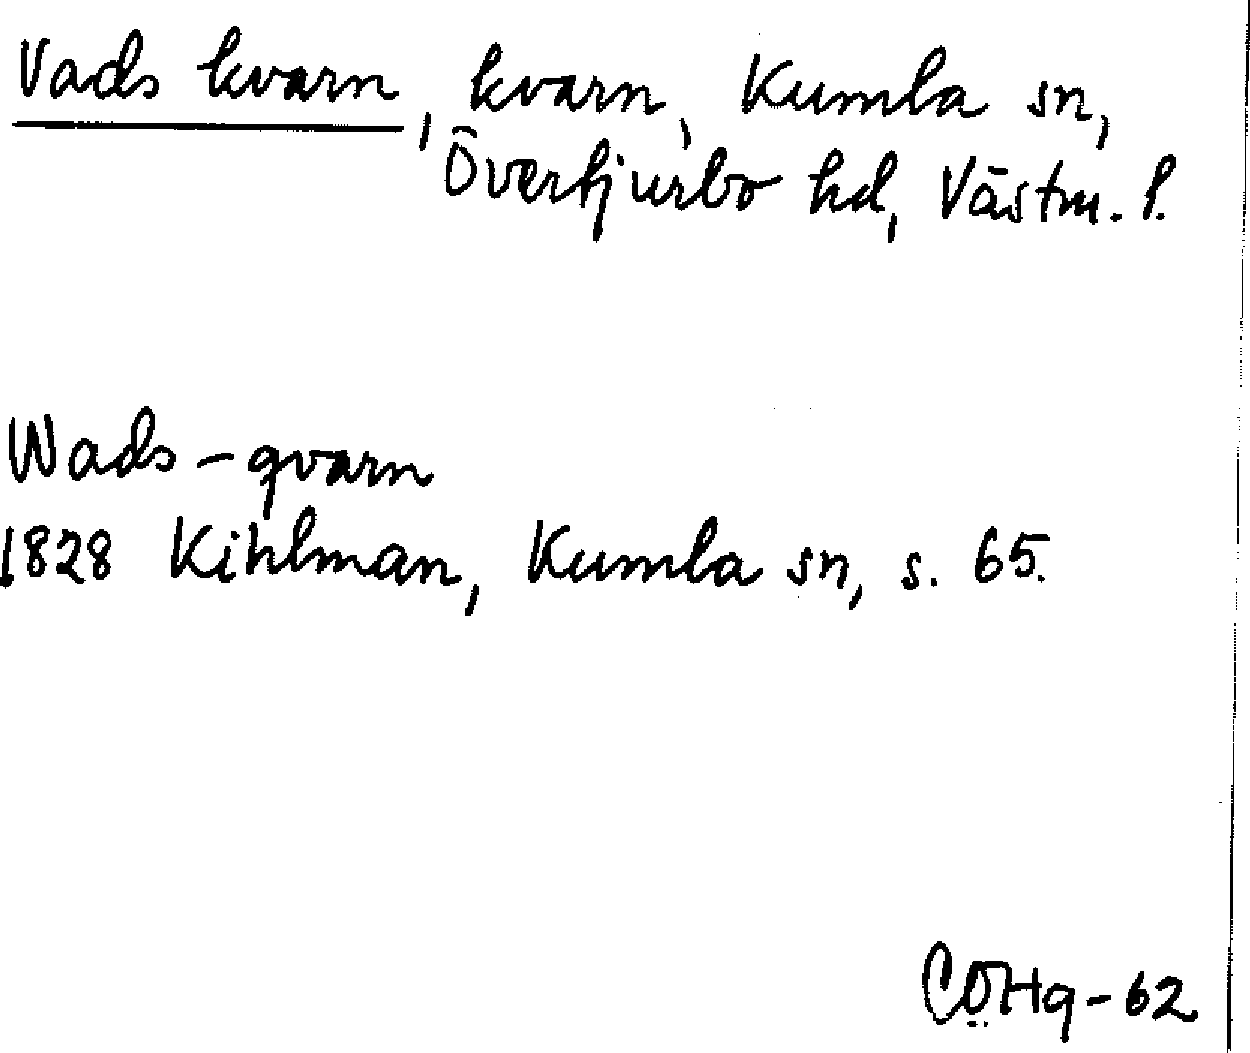 Vads kvarn, kvarn, Kumla sn,
Övertjurbo hd, Västm. l.
Wads-qvarn
1828 Kihlman, Kumla sn, s. 65.
CÖHg-62